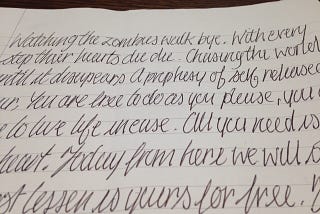 Watching the zombies walk bye. With every
step their hearts die die. Chasing the world
until it disapears A prophesy of self released
You are free to do as you please, you
to live life in ease. All you need is
heart. Today from here we will
lesson is yours for free.